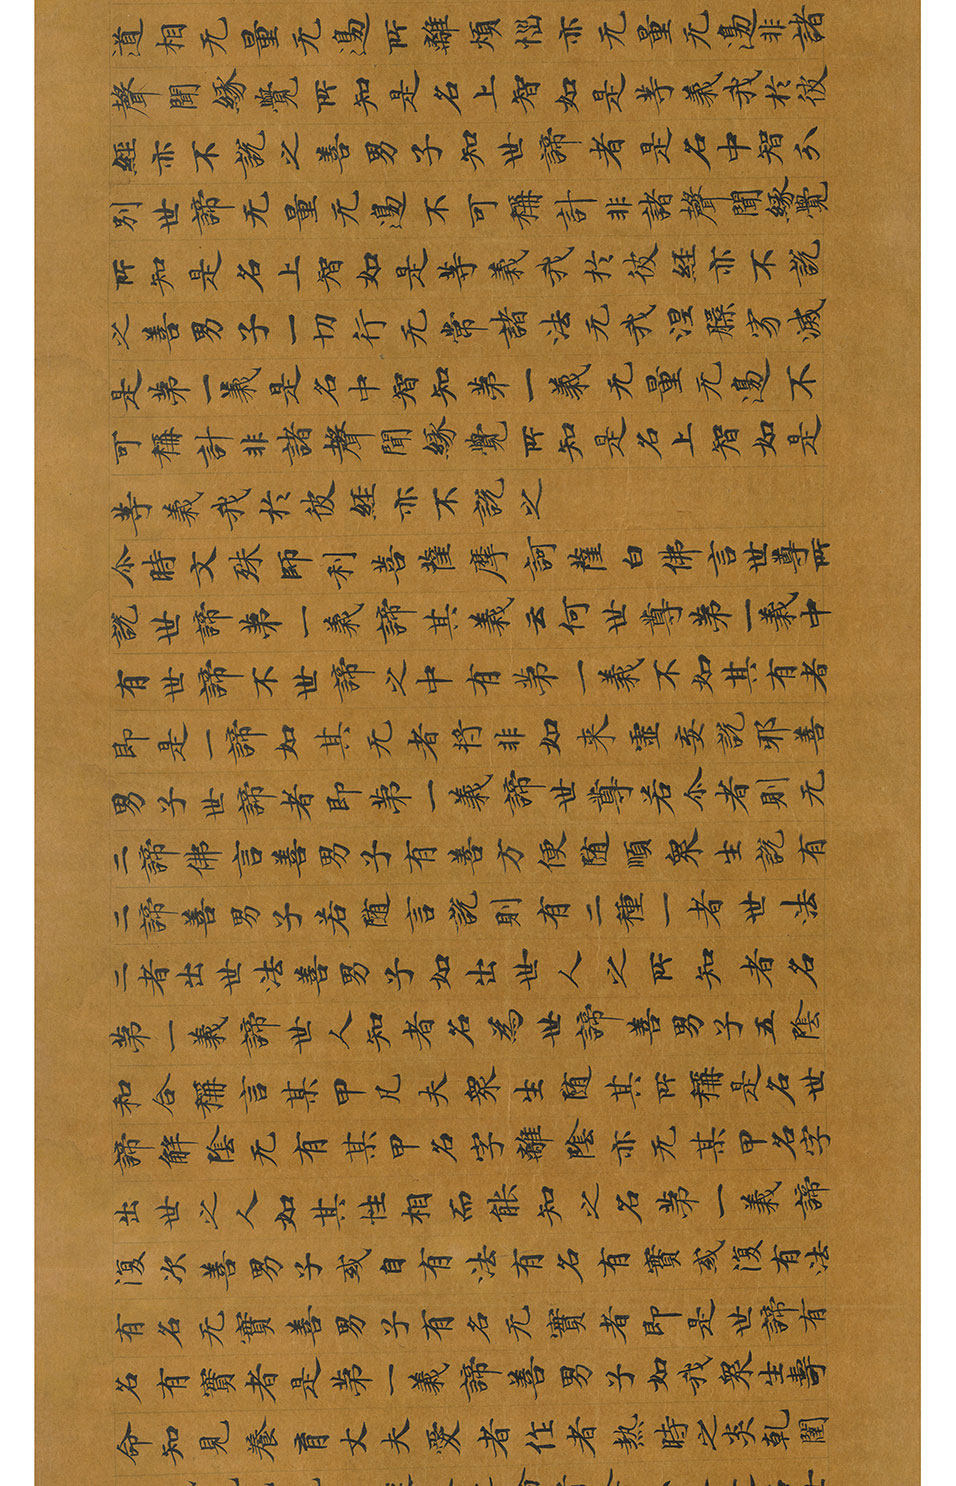 道相无量无邊所離煩惱亦无量无邊非諸
聲聞緣覺所知是名上智如是等義我於彼
經亦不說之善男子知世諦者是名中智分
別世諦无量无邊不可稱計非諸聲聞緣覺
所知是名上智如是等義我於彼經亦不說
之善男子一切行无常諸法无我涅槃寂滅
是第一義是名中智知第一義无量无邊不
可稱計非諸聲聞緣覺所知是名上智如是
等義我於彼經亦不說之
尒時文殊師利菩薩摩訶薩白佛言世尊所
說世諦第一義諦其義云何世尊第一義中
有世諦不世諦之中有第一義不如其有者
即是一諦如其无者將非如来虛妄說邪善
男子世諦者即第一義諦世尊若尒者則无
二諦佛言善男子有善方便随順眾生說有
二諦善男子若随言說則有二種一者世法
二者出世法善男子如出世人之所知者名
第一義諦世人知者名為世諦善男子五陰
和合稱言某甲凡夫眾生随其所稱是名世
諦解陰无有某甲名字離陰亦无某甲名字
出世之人如其性相而能知之名第一義諦
復次善男子或自有法有名有實或復有法
有名无實善男子有名无實者即是世諦有
名有實者是第一義諦善男子如我眾生壽
命知見養育丈夫受者作者熱時之炎乾闥